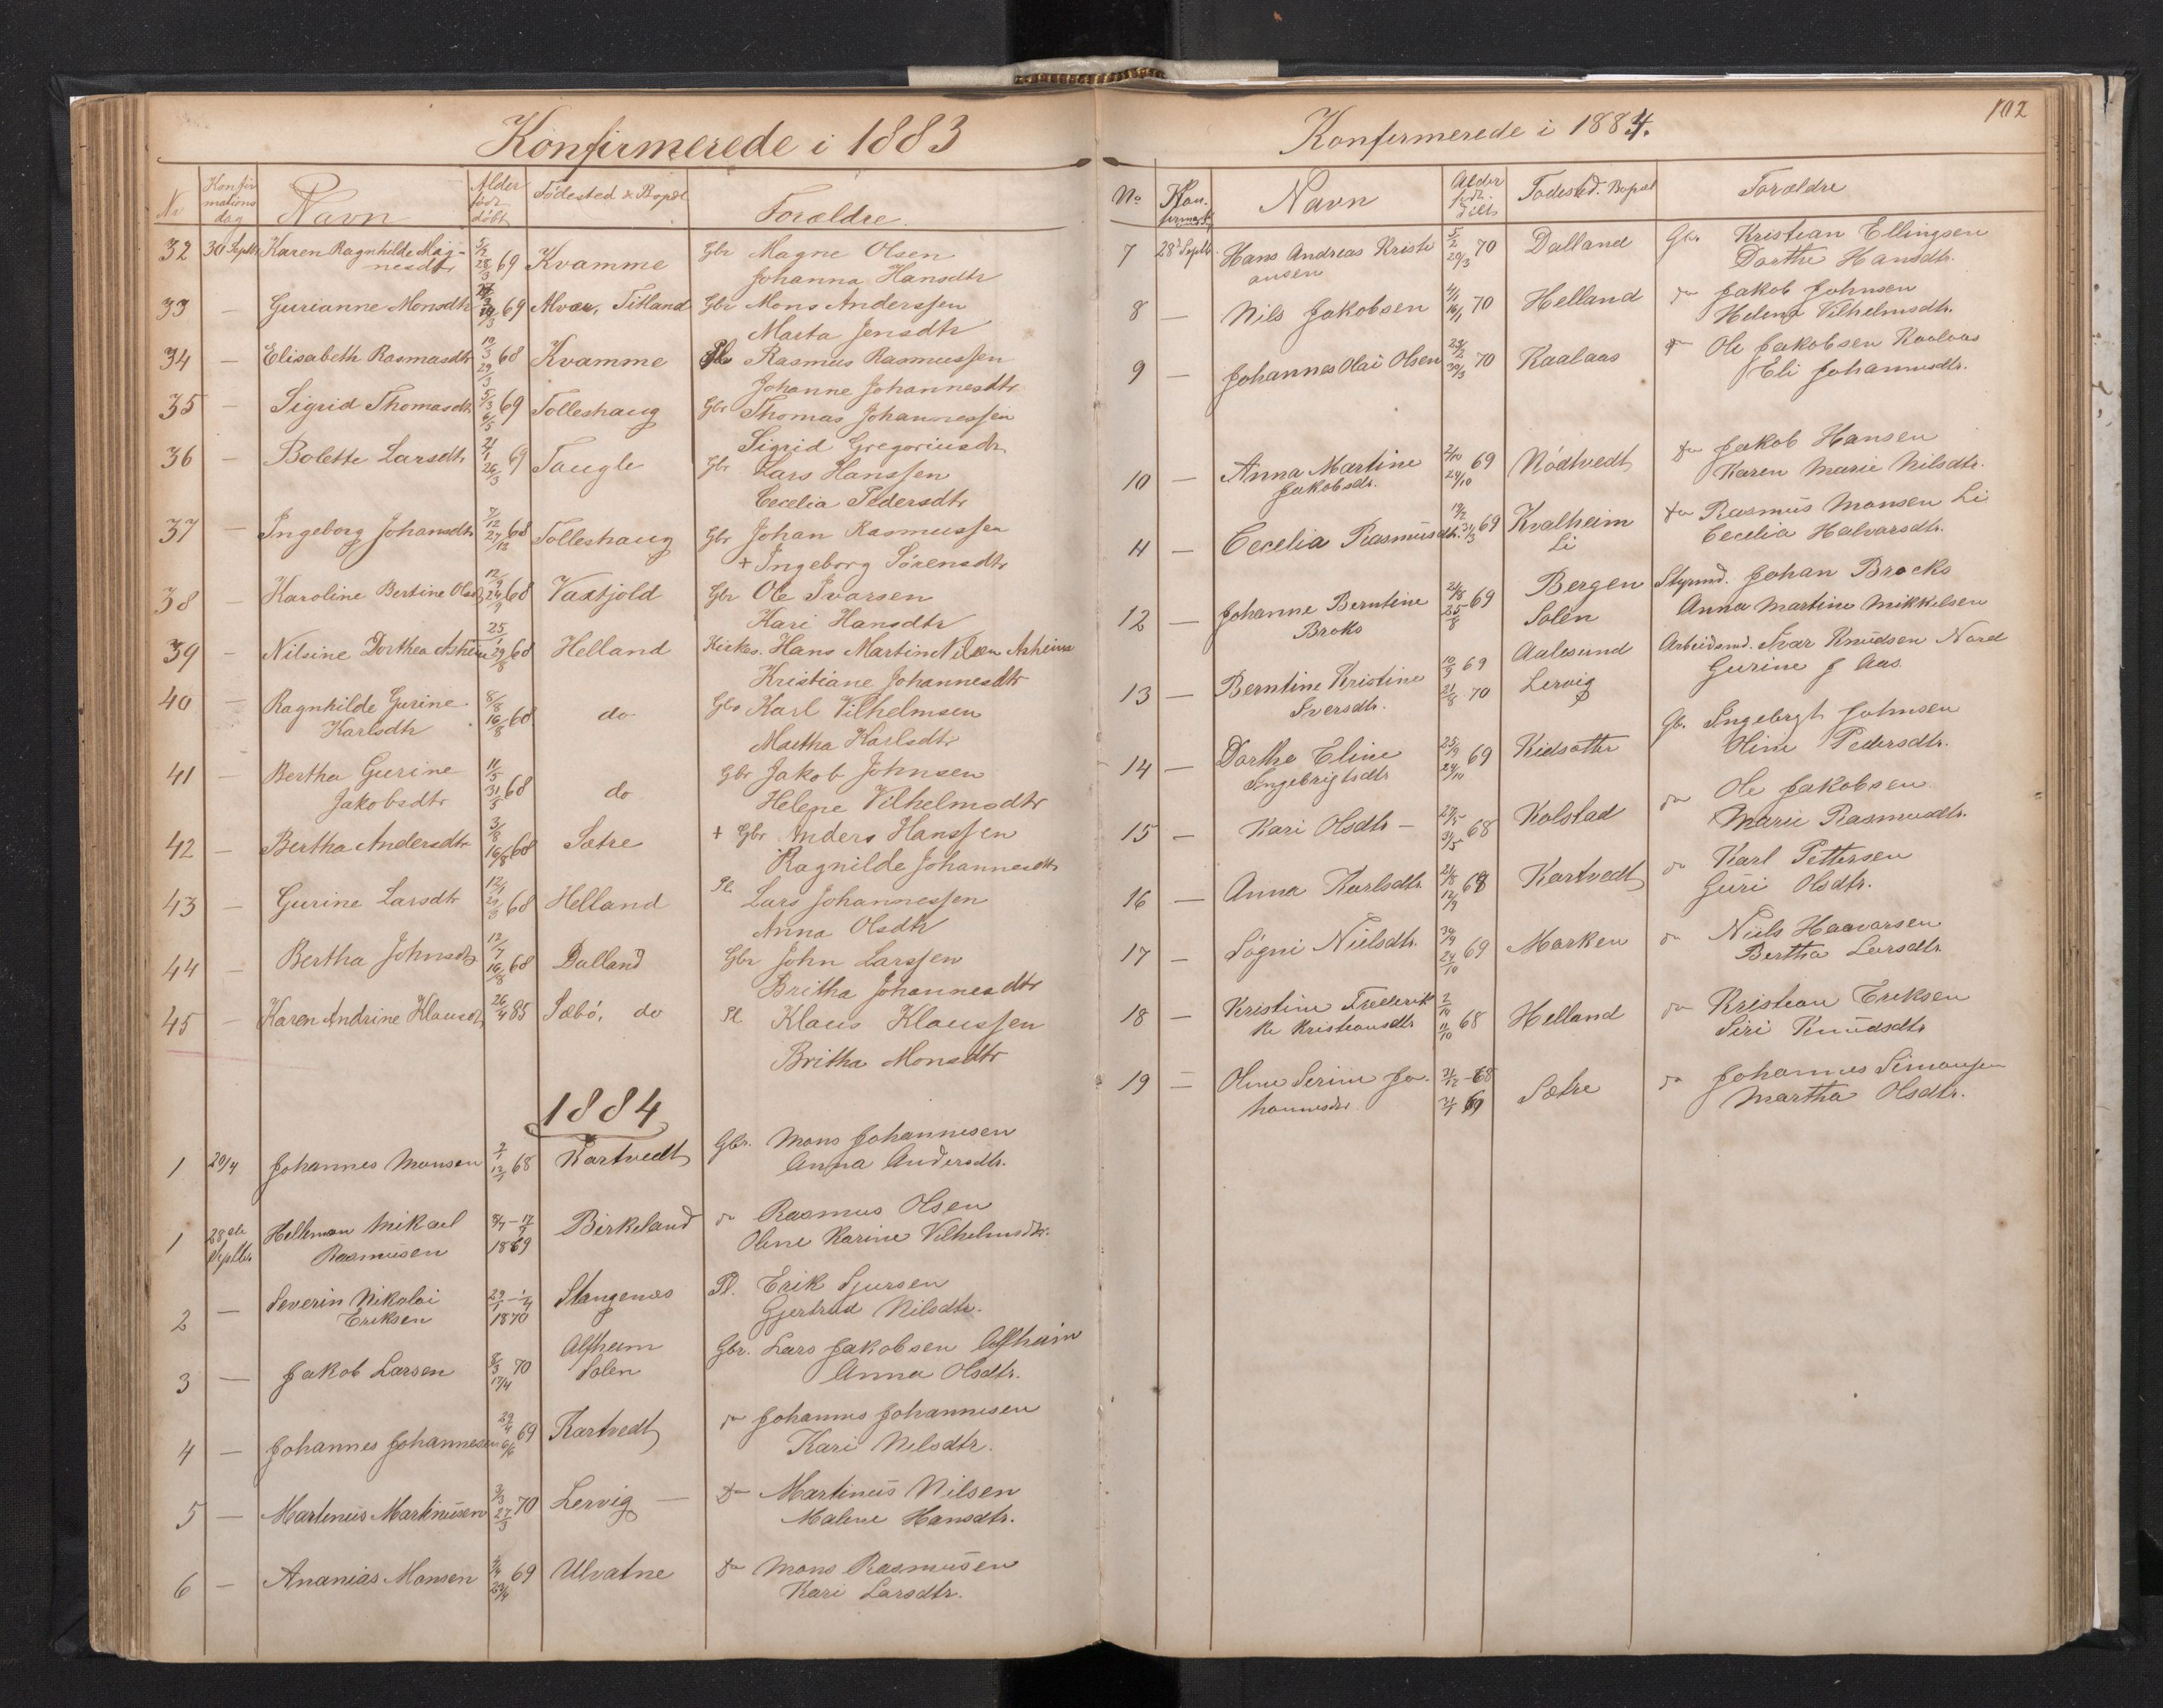 Konfirmerede i 1883
Nr Konfirmations dag Navn Alder født døbt Födested & Bopæl Forældre
32 30 Septbr Karen Ragnhilde Mag- 5/2 28/3 69 Kvamme Gbr Magne Olsen
nesdtr Johanna Hansdtr
33 — Gurianne Monsdtr 69 Alvær, Titland Gbr Mons Anderssen
Marta Jensdtr
34 — Elisabeth Rasmusdtr 10/3 29/3 68 Kvamme Pl Rasmus Rasmussen
Johanne Johannesdtr
35 — Sigrid Thomasdtr 5/3 6/5 69 Tolleshaug Gbr Thomas Johannessen
Sigrid Gregoriusdtr
36 — Bolette Larsdtr 21/1 26/3 69 Taugle Gbr Lars Hanssen
Cecelia Pedersdtr
37 — Ingeborg Johansdtr 7/12 27/12 68 Tolleshaug Gbr Johan Rasmussen
+ Ingeborg Sørensdtr
38 — Karoline Bertine Olsdtr 68 Vaxtjold Gbr Ole Ivarsen
Kari Hansdtr
39 — Nilsine Dorthea Asheim 68 Helland Kirkes. Hans Martin Nilsen Asheim
Kristiane Johannesdtr
40 — Ragnhilde Gurine 8/8 16/8 68 do Gbr Karl Vilhelmsen
Karlsdtr Martha Karlsdtr
41 — Bertha Gurine 11/5 31/5 68 do Gbr Jakob Johnsen
Jakobsdtr Helene Vilhelmsdtr
42 — Bertha Andersdtr 3/8 16/8 68 Sætre + Gbr Anders Hanssen
Ragnilde Johannesdtr
43 — Gurine Larsdtr 68 Helland Pl. Lars Johannessen
Anna Olsdtr
44 — Bertha Johnsdtr 12/7 16/8 68 Dalland Gbr John Larssen
Britha Johannesdtr
45 — Karen Andrine Klausdtr 26/4 85 Sæbö, do Pl Klaus Klaussen
Britha Monsdtr
1884
1 20/4 Johannes Monsen 2/1 12/1 68 Kartvedt Gbr. Mons Johannesen
Anna Andersdtr.
1 28de Septbr Helleman Mikael Birkeland do Rasmus Olsen
Rasmusen 1869 Oline Karine Vilhelmsdtr.
2 — Severin Nikolai Stangenes Pl. Erik Sjursen
Eriksen 1870 Gjertrud Nilsdtr.
3 — Jakob Larsen 8/3 17/4 70 Alfheim Gbr. Lars Jakobsen Alfheim
Solen Anna Olsdtr.
4 — Johannes Johannesen 69 Kartvedt do Johannes Johannesen
Kari Nilsdtr.
5 — Martinus Martinusen 3/3 27/3 70 Lervig — do Martinus Nilsen
Malene Hansdtr.
6 — Ananias Monsen 69 Ulvatne do Mons Rasmusen
Kari Larsdtr.
Konfirmerede i 1884.
102
No Kon- firmerk Navn Alder født. døbt Fødested. Bopæl Forældre
7 28de Septbr. Hans Andreas Kristi 5/2 20/3 70 Dalland Gb. Kristian Ellingsen
ansen Dorthe Hansdtr.
8 — Nils Jakobsen 4/1 16/1 70 Helland do Jakob Johnsen
Helene Vilhelmsdtr.
9 — Johannes Olai Olsen 70 Kaalaas do Ole Jakobsen Kaalaas
Eli Johannesdtr.
10 — Anna Martine 2/10 24/10 69 Nödtvedt do Jakob Hansen
Jakobsdr. Karen Marie Nilsdtr.
11 — Cecelia Rasmusdtr. 69 Kvalheim do Rasmus Monsen Li
Li Cecelia Halvarsdtr.
12 — Johanne Berntine 69 Bergen Styrmd. Johan Brocks
Broks Solen Anna Martine Mikkelsen
13 — Berntine Kristine 10/9 69 Aalesund Arbeidsmd. Ivar Knudsen Nord
Iversdtr. 21/8 70 Lervig Gurine J Aas
14 — Dorthe Eline 25/9 24/10 69 Kidsætter Gb. Ingebrgt Johnsen
Ingebrigtsdtr Oline Pedersdtr.
15 — Kari Olsdtr — 68 Kolstad do Ole Jakobsen
Marie Rasmusdtr.
16 — Anna Karlsdtr. 68 Kartvedt do Karl Pettersen
Guri Olsdtr.
17 — Sögni Nielsdtr. 69 Marken do Niels Haavarsen
Bertha Larsdtr.
18 — Kristine Frederik 68 Helland do Kristian Eriksen
ke Kristiansdtr Siri Knudsdtr
19 — Oline Serine Jo- 31/12 - 68 Sætre do Johannes Simonsen
hannesdtr. 31/1 69 Martha Olsdtr.